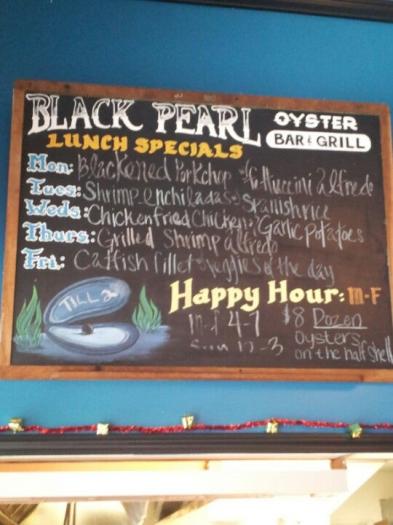 BLACK PEARL OYSTER
BAR & GRILL
LUNCH SPECIALS
Mon: Blackened Porkchop Fettuccini alfredo
Tues: Shrimp enchiladas Spanish rice
Weds: Chicken fried Chicken: Garlic Potatoes
Thurs: Grilled Shrimp alfredo
Fri: Catfish fillet veggies of the day
TILL 2
Happy Hour: M-F
M-F 4-7 $8 Dozen
-3 oysters
on the half shell